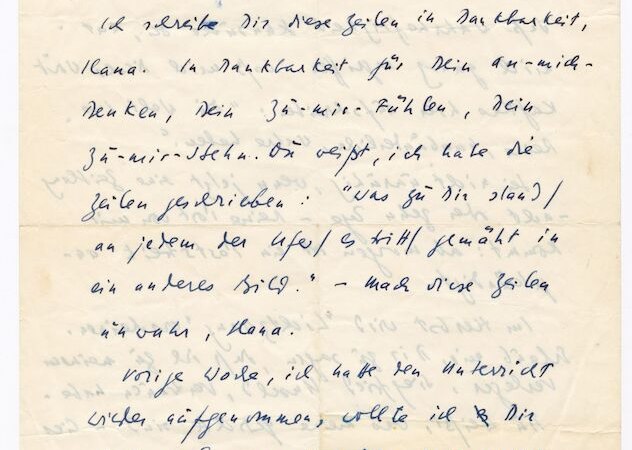 Ich schreibe Dir diese Zeilen in Dankbarkeit,
Ilana. In Dankbarkeit für Dein An-mich-
Denken, Dein Zu-mir-Fühlen, Dein
Zu-mir-Stehn. Du weißt, ich habe die
Zeilen geschrieben: "Was zu dir stand/
an jedem der Ufer/ es tritt/ gemäht in
ein anderes Bild." – Mach diese Zeilen
unwahr, Ilana.
Vorige Woche, ich hatte den Unterricht
wieder aufgenommen, wollte ich Dir